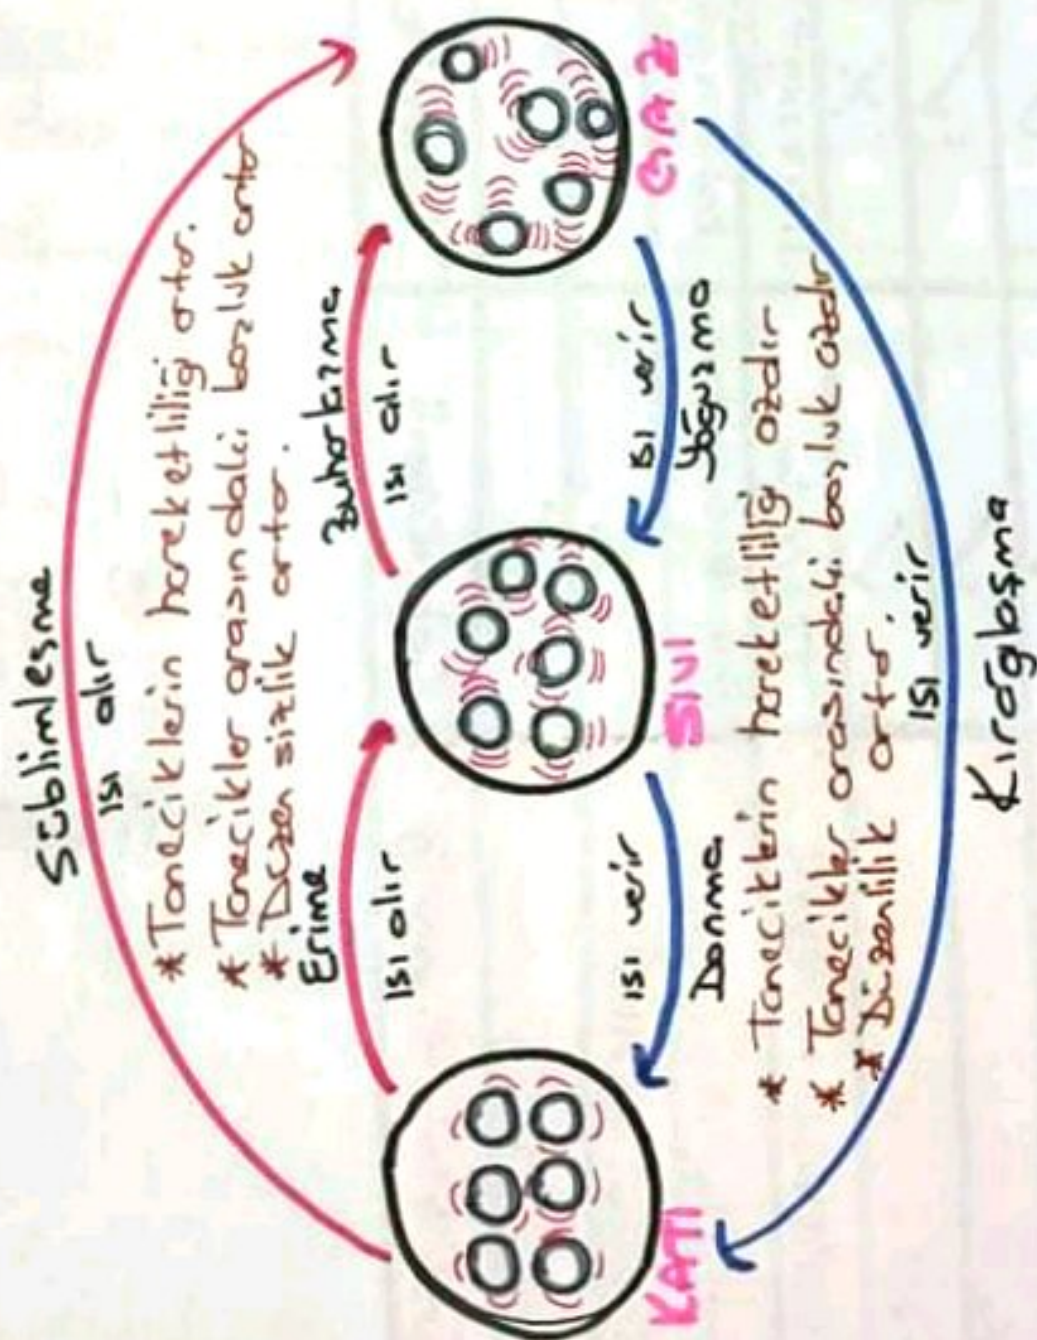 Süblimleşme
ısı alır
* Taneciklerin hareketliliği artar.
* Tanecikler arasındaki boşluk artar
* Düzensizlik artar.
Erime
ısı alır
Buharlaşma
ısı alır
KATI
SIVI
GAZ
ısı verir
Donma
ısı verir
Yoğuşma
* Taneciklerin hareketliliği azdır
* Tanecikler arasındaki boşluk azdır
* Düzenlilik artar.
ısı verir
Kırağılaşma